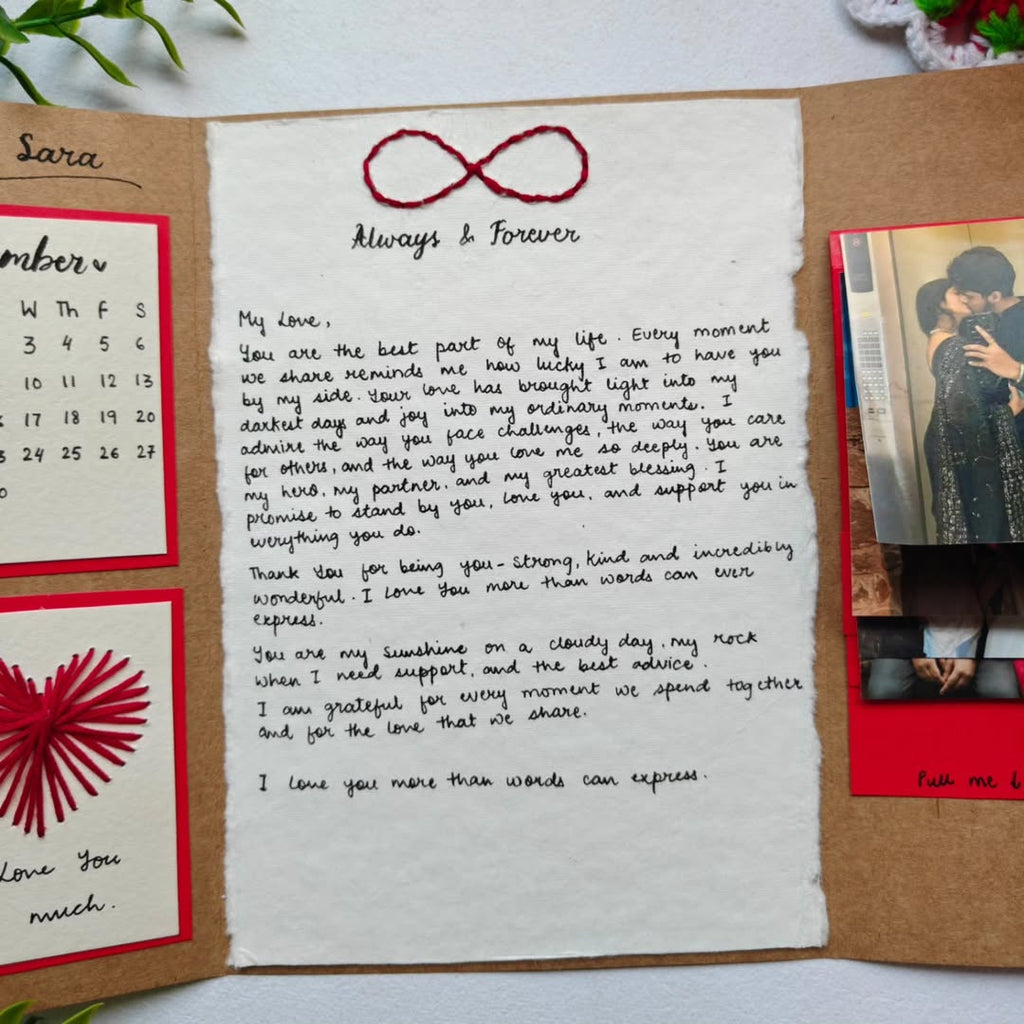 Sara
mber
W Th F S
3 4 5 6
10 11 12 13
17 18 19 20
24 25 26 27
Love You
much.
Always & Forever
My Love,
You are the best part of my life. Every moment
we share reminds me how lucky I am to have you
by my side. Your love has brought light into my
darkest days and joy into my ordinary moments. I
admire the way you face challenges, the way you care
for others, and the way you love me so deeply. You are
my hero, my partner, and my greatest blessing. I
promise to stand by you, love you, and support you in
everything you do.
Thank You for being you - Strong, kind and incredibly
wonderful. I Love You more than words can ever
express.
You are my Sunshine on a cloudy day, my rock
when I need support, and the best advice.
I am grateful for every moment we spend together
and for the love that we share.
I love you more than words can express.
Pull me